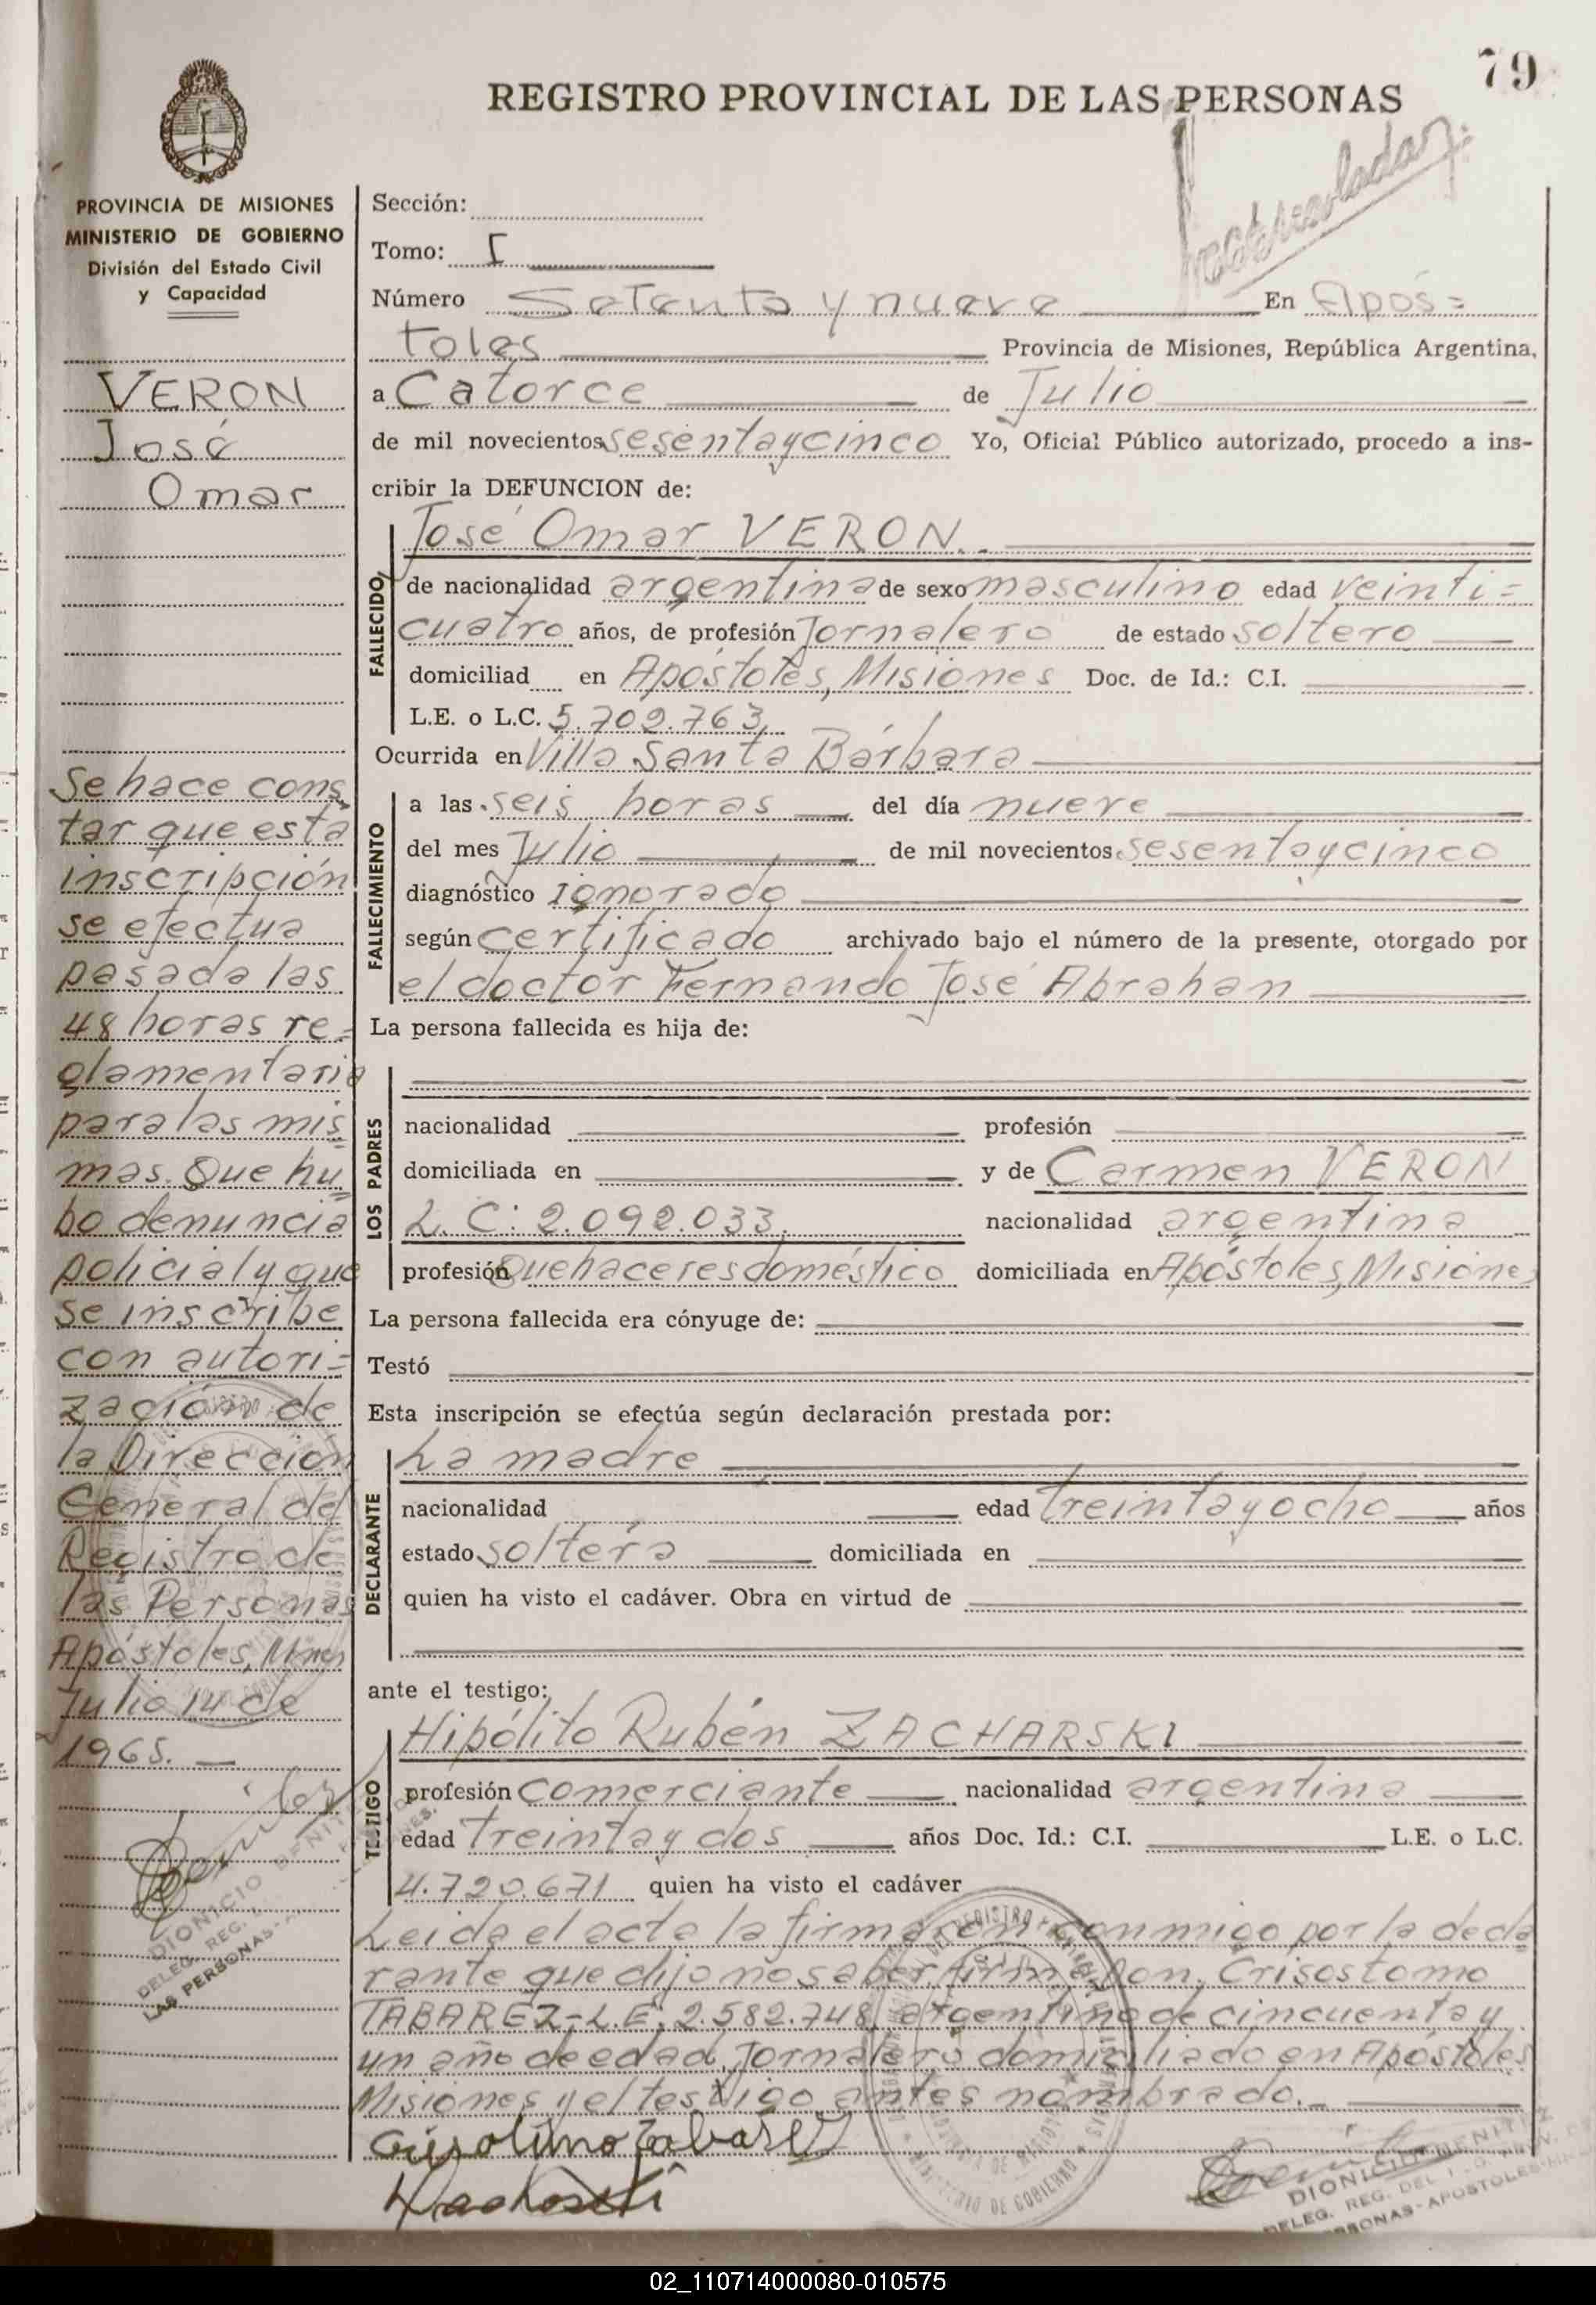 79
REGISTRO PROVINCIAL DE LAS PERSONAS
PROVINCIA DE MISIONES
MINISTERIO DE GOBIERNO
División del Estado Civil
y Capacidad
VERON
José
Omar
Se hace cons
tar que esta
inscripción
se efectua
pasada las
48 horas re=
glamentaria
para las mis
mas. Que hu=
bo denuncia
policial y que
se inscribe
con autori=
zación de
la Dirección
General del
Registro de
las Personas
Apóstoles, Mnes
Julio 14 de
1965.
DIONICIO BENITEZ
DELEG. REG.
LAS PERSONAS-
Sección:
Tomo: I
Número Setenta y nueve En Após=
toles Provincia de Misiones, República Argentina,
a Catorce de Julio
de mil novecientos sesentaycinco Yo, Oficial Público autorizado, procedo a ins-
cribir la DEFUNCION de:
FALLECIDO
José Omar VERON.
de nacionalidad argentina de sexo masculino edad veinti=
cuatro años, de profesión Jornalero de estado soltero
domiciliad en Apóstoles, Misiones Doc. de Id.: C.I.
L.E. o L.C. 5.709.763,
Ocurrida en Villa Santa Bárbara
FALLECIMIENTO
a las seis horas del día nueve
del mes Julio de mil novecientos sesentaycinco
diagnóstico ignorado
según certificado archivado bajo el número de la presente, otorgado por
el doctor Fernando José Abrahan
La persona fallecida es hija de:
LOS PADRES
nacionalidad profesión
domiciliada en y de Carmen VERON
L.C: 2.092.033, nacionalidad argentina
profesión Quehaceres doméstico domiciliada en Apóstoles, Misiones
La persona fallecida era cónyuge de:
Testó
Esta inscripción se efectúa según declaración prestada por:
DECLARANTE
La madre
nacionalidad edad treintayocho años
estado soltera domiciliada en
quien ha visto el cadáver. Obra en virtud de
ante el testigo:
TESTIGO
Hipólito Rubén ZACHARSKI
profesión comerciante nacionalidad argentina
edad treintay dos años Doc. Id.: C.I. L.E. o L.C.
4.720.671 quien ha visto el cadáver
Leida el acta la firmaron conmigo por la decla
rante que dijo no saber firma Don. Crisostomo
TABAREZ-L.E: 2.582.748, argentino de cincuenta y
un año de edad, Jornalero domiciliado en Apóstoles
Misiones y el testigo antes nombrado.
Crisotimo Tabarez
DIONICIO BENITEZ
DELEG. REG. DEL
PERSONAS-APOSTOLES-
02_110714000080-010575